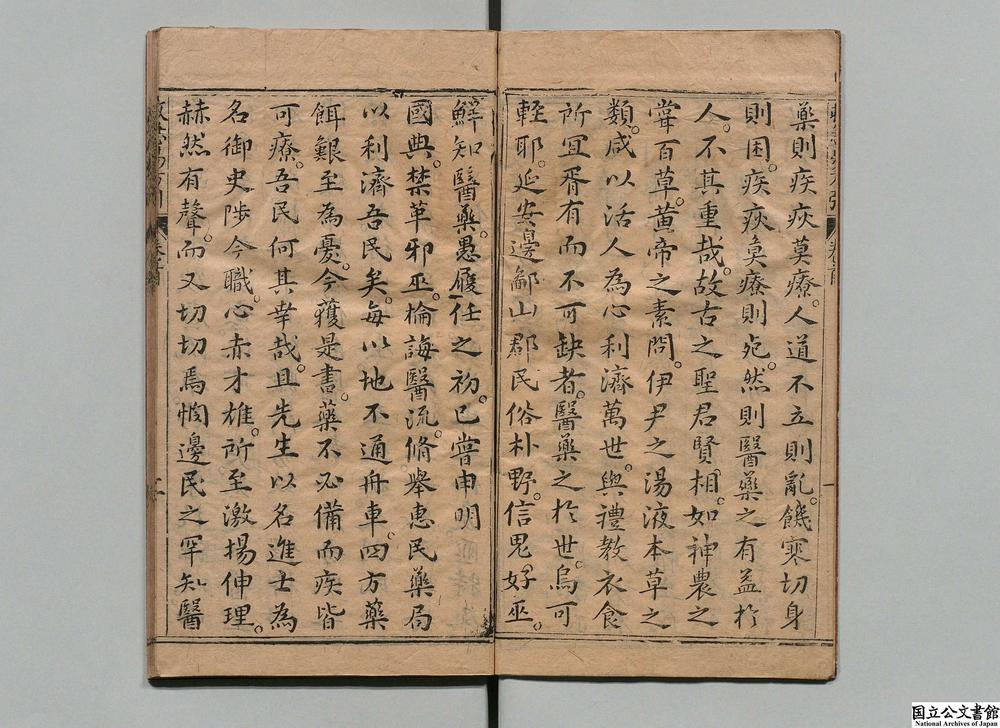 藥則疾疢莫療。人道不立則亂。饑寒切身
則困。疾疢莫療則死。然則醫藥之有益於
人。不其重哉。故古之聖君賢相。如神農之
嘗百草。黃帝之素問。伊尹之湯液本草之
類。咸以活人為心利濟萬世。與禮教衣食
所宜胥有而不可缺者。醫藥之於世。烏可
輕耶。延安邊鄙山郡民俗朴野。信鬼好巫。
鮮知醫藥。愚履任之初。已嘗申明
國典。禁革邪巫。掄誨醫流。脩舉惠民藥局
以利濟吾民矣。每以地不通舟車。四方藥
餌艱至為憂。今獲是書。藥不必備而疾皆
可療。吾民何其幸哉。且先生以名進士為
名御史陟今職。心赤才雄。所至激揚伸理。
赫然有聲。而又切切焉憫邊民之罕知醫
国立公文書館
National Archives of Japan